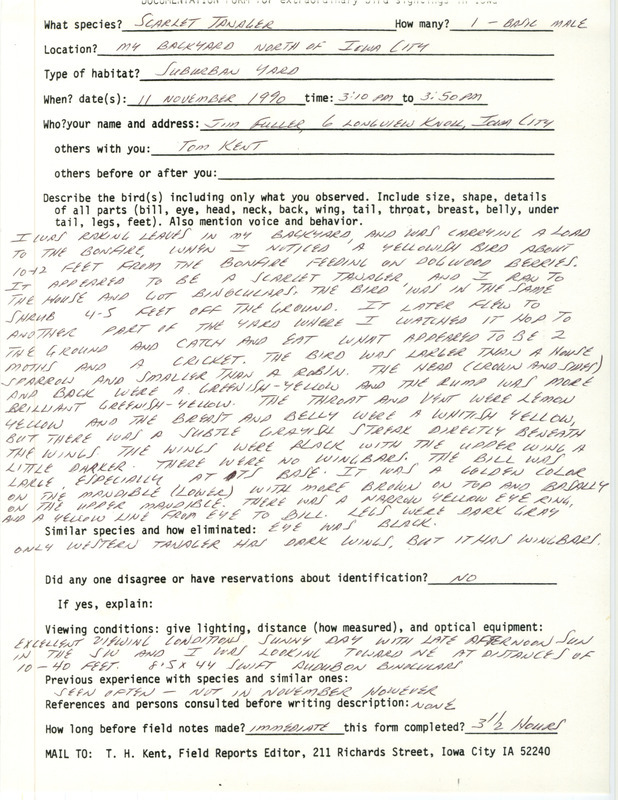 DOCUMENTATION FORM for extraordinary bird sightings in Iowa
What species? SCARLET TANAGER How many? 1 - BASIC MALE
Location? MY BACKYARD NORTH OF IOWA CITY
Type of habitat? SUBURBAN YARD
When? date(s): 11 NOVEMBER 1990 time: 3:10 PM to 3:50 PM
Who?your name and address: JIM FULLER, 6 LONGVIEW KNOLL, IOWA CITY
others with you: TOM KENT
others before or after you:
Describe the bird(s) including only what you observed. Include size, shape, details
of all parts (bill, eye, head, neck, back, wing, tail, throat, breast, belly, under
tail, legs, feet). Also mention voice and behavior.
I WAS RAKING LEAVES IN MY BACKYARD AND WAS CARRYING A LOAD
TO THE BONFIRE, WHEN I NOTICED A YELLOWISH BIRD ABOUT
10-12 FEET FROM THE BONFIRE FEEDING ON DOGWOOD BERRIES.
IT APPEARED TO BE A SCARLET TANAGER, AND I RAN TO
THE HOUSE AND GOT BINOCULARS. THE BIRD WAS IN THE SAME
SHRUB 4-5 FEET OFF THE GROUND. IT LATER FLEW TO
ANOTHER PART OF THE YARD WHERE I WATCHED IT HOP TO
THE GROUND AND CATCH AND EAT WHAT APPEARED TO BE 2
MOTHS AND A CRICKET. THE BIRD WAS LARGER THAN A HOUSE
SPARROW AND SMALLER THAN A ROBIN. THE HEAD (CROWN AND SIDES)
AND BACK WERE A GREENISH-YELLOW AND THE RUMP WAS MORE
BRILLIANT GREENISH-YELLOW. THE THROAT AND VENT WERE LEMON
YELLOW AND THE BREAST AND BELLY WERE A WHITISH YELLOW,
BUT THERE WAS A SUBTLE GRAYISH STREAK DIRECTLY BENEATH
THE WINGS. THE WINGS WERE BLACK WITH THE UPPER WING A
LITTLE DARKER. THERE WERE NO WINGBARS. THE BILL WAS
LARGE ESPECIALLY AT ITS BASE. IT WAS A GOLDEN COLOR
ON THE MANDIBLE (LOWER) WITH MORE BROWN ON TOP AND BASALLY
ON THE UPPER MANDIBLE. THERE WAS A NARROW YELLOW EYE RING,
AND A YELLOW LINE FROM EYE TO BILL. LEGS WERE DARK GRAY
Similar species and how eliminated: EYE WAS BLACK.
ONLY WESTERN TANAGER HAS DARK WINGS, BUT IT HAS WINGBARS.
Did any one disagree or have reservations about identification? NO
If yes, explain:
Viewing conditions: give lighting, distance (how measured), and optical equipment:
EXCELLENT VIEWING CONDITIONS SUNNY DAY WITH LATE AFTERNOON SUN
IN THE SW AND I WAS LOOKING TOWARD NE AT DISTANCES OF
10-40 FEET. 8.5 X 44 SWIFT AUDUBON BINOCULARS
Previous experience with species and similar ones:
SEEN OFTEN - NOT IN NOVEMBER HOWEVER
References and persons consulted before writing description: NONE
How long before field notes made? IMMEDIATE this form completed? 3 1/2 HOURS
MAIL TO: T. H. Kent, Field Reports Editor, 211 Richards Street, Iowa City IA 52240